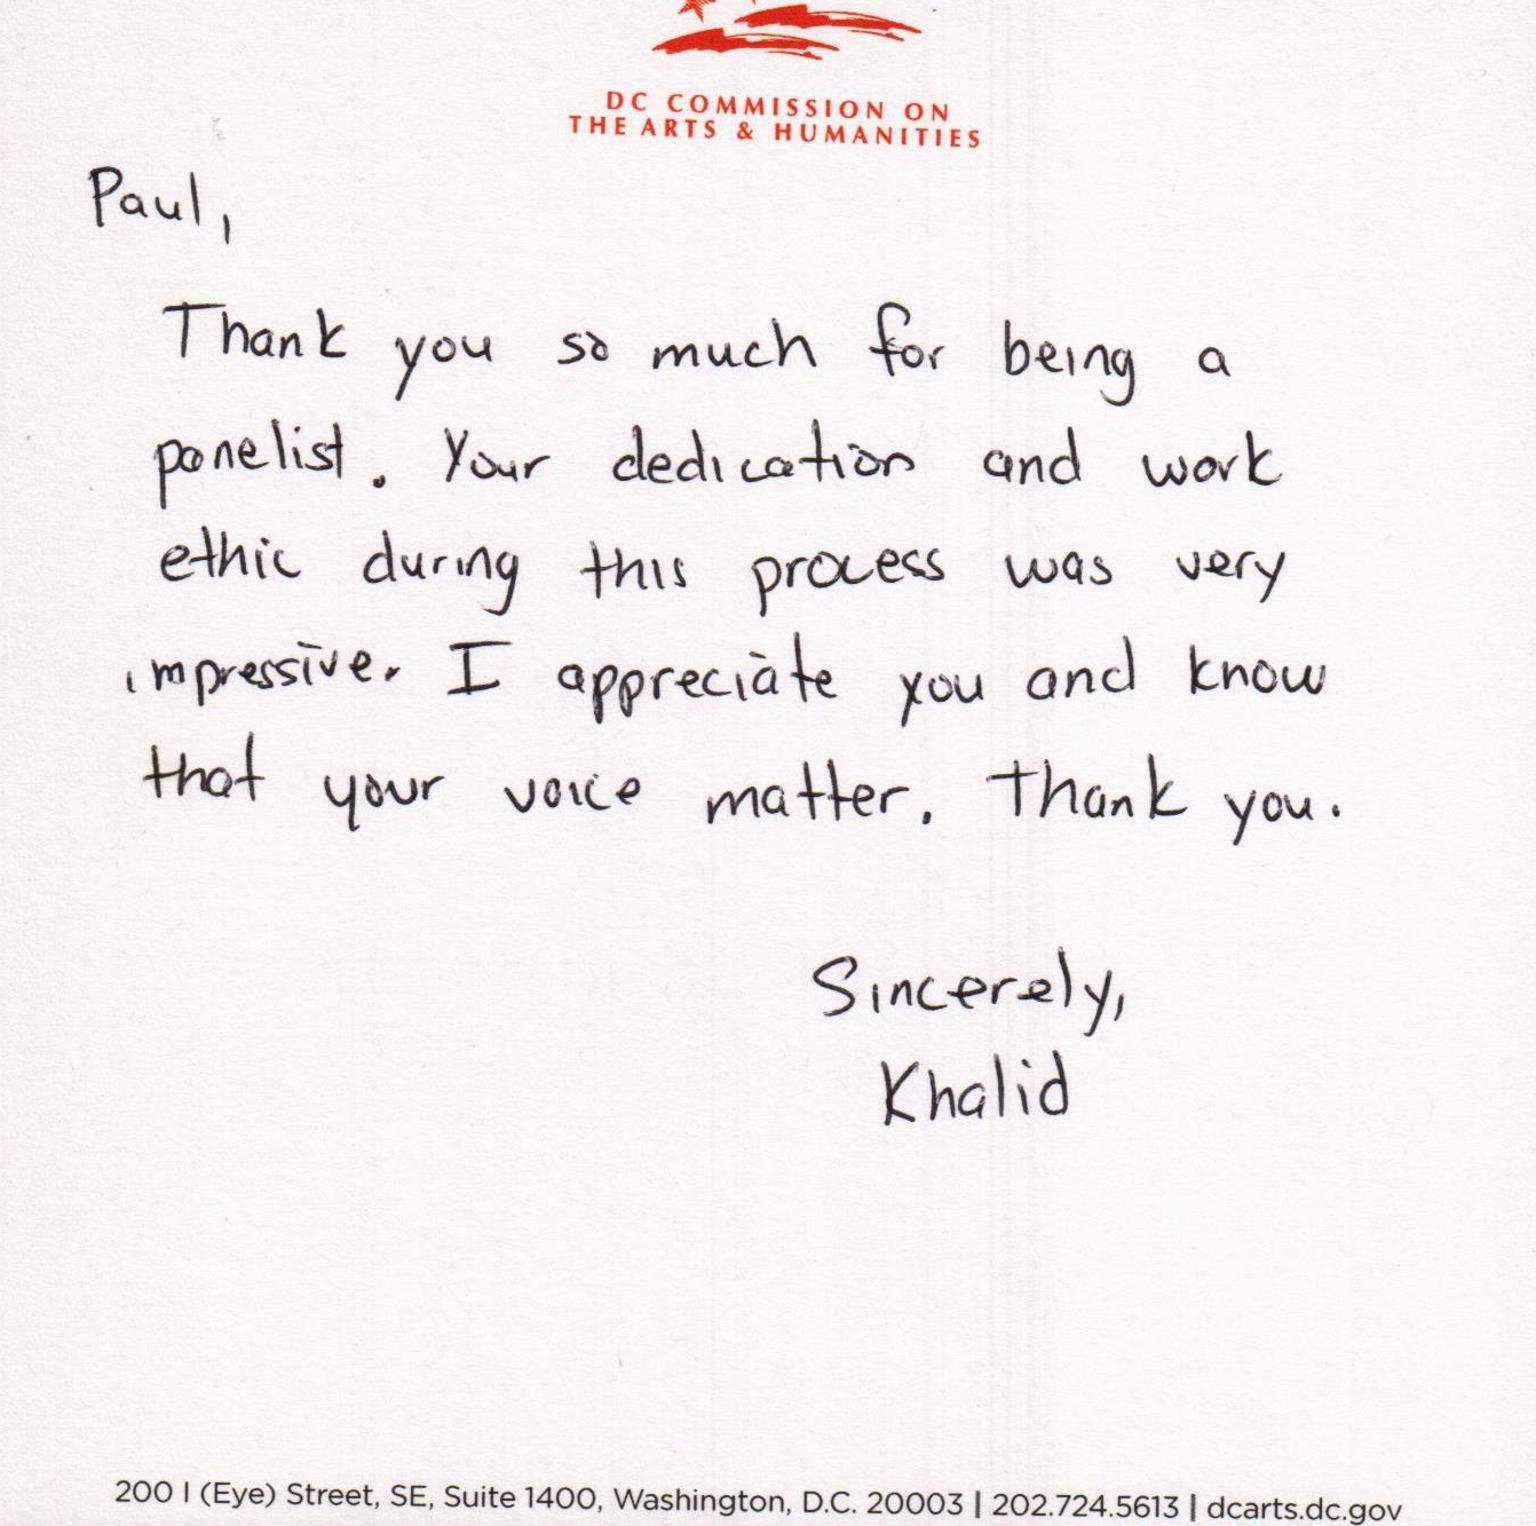 DC COMMISSION ON
THE ARTS & HUMANITIES
Paul,
Thank you so much for being a
panelist. Your dedication and work
ethic during this process was very
impressive. I appreciate you and know
that your voice matter. Thank you.
Sincerely,
Khalid
200 I (Eye) Street, SE, Suite 1400, Washington, D.C. 20003 | 202.724.5613 | dcarts.dc.gov